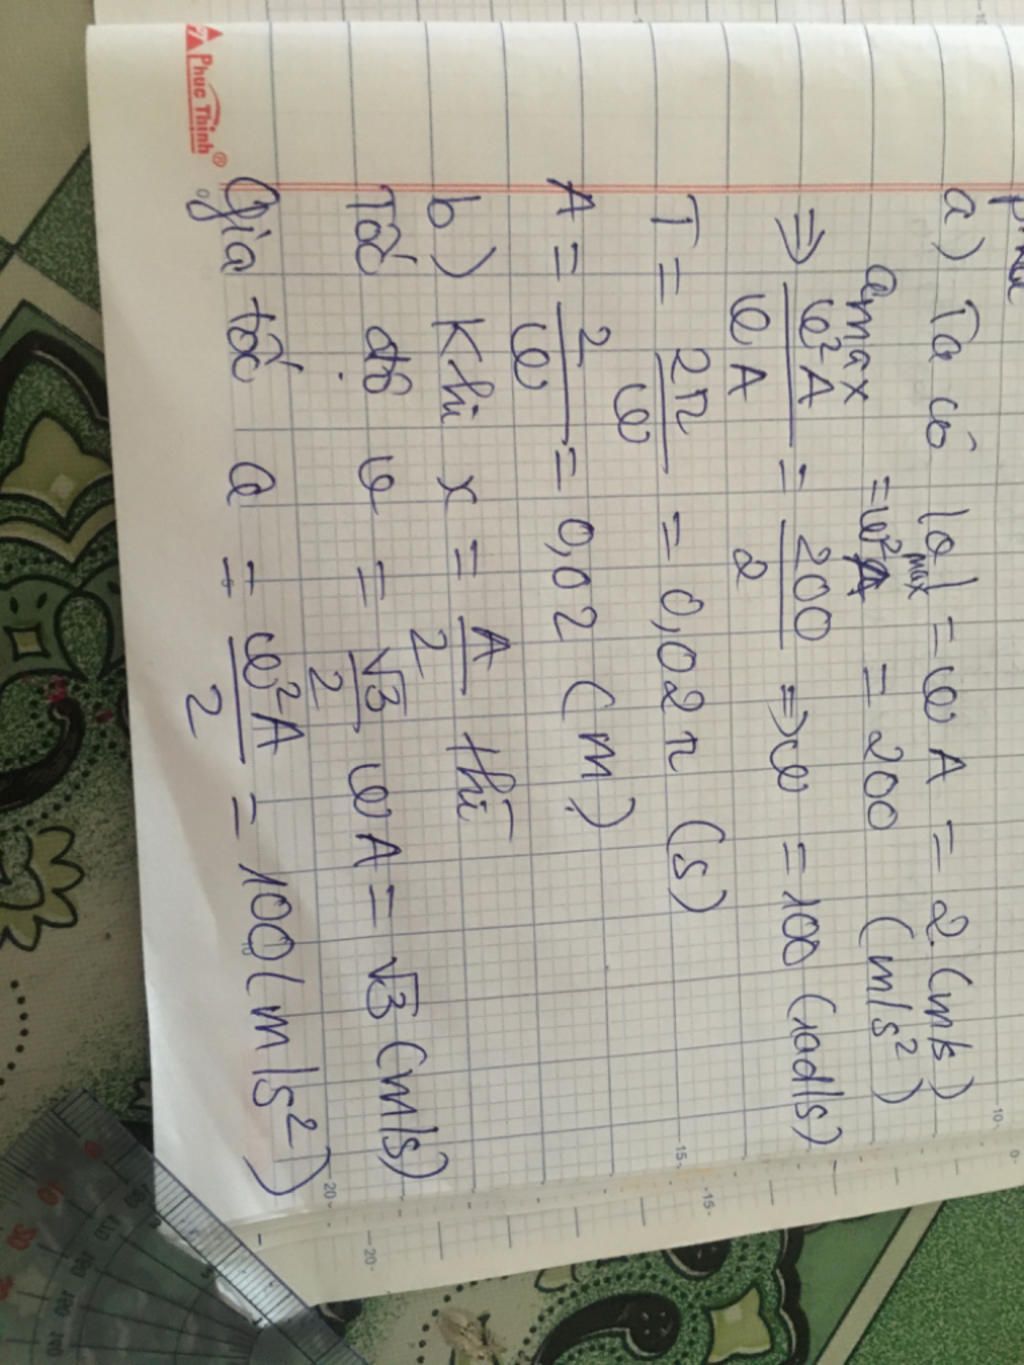 a) Ta có |v|max = ωA = 2 (m/s)
amax = ω²A = 200 (m/s²)
⇒ ω²A/ωA = 200/2 ⇒ ω = 100 (rad/s)
T = 2π/ω = 0,02π (s)
A = 2/ω = 0,02 (m)
b) Khi x = A/2 thì
Tốc độ v = √3/2 ωA = √3 (m/s)
Gia tốc a = ω²A/2 = 100 (m/s²)
Phuc Thinh®